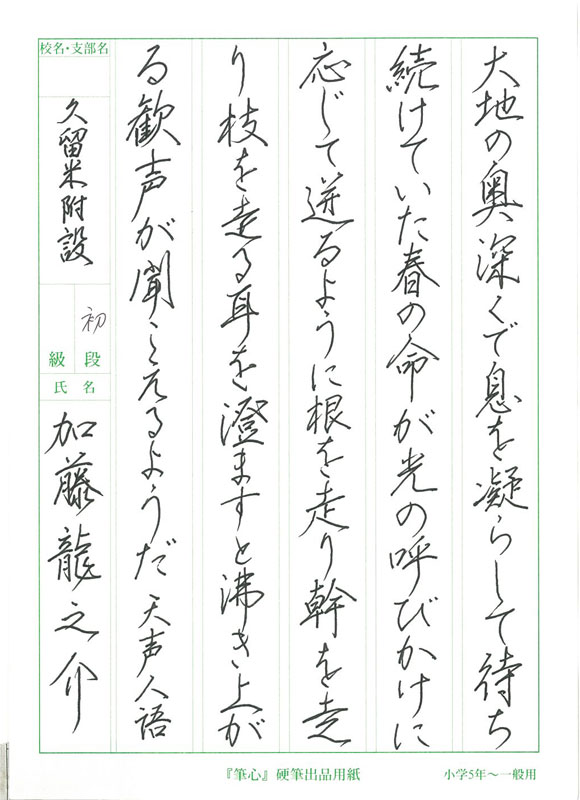 大地の奥深くで息を凝らして待ち
続けていた春の命が光の呼びかけに
応じて迸るように根を走り幹を走
り枝を走る耳を澄ますと沸き上が
る歓声が聞こえるようだ 天声人語
校名・支部名
久留米附設
初
段
級
氏名
加藤龍之介
『筆心』硬筆出品用紙
小学5年〜一般用